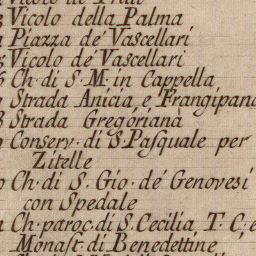 Vicolo de
Vicolo della Palma
Piazza de' Vascellari
Vicolo de' Vascellari
Ch. di S. M. in Cappella
Strada Anicia, e, Frangipana
Strada Gregoriana
Conserv. di S. Pasquale per
Zitelle
Ch. di S. Gio. de' Genovesi
con Spedale
Ch. paroc. di S. Cecilia, T. C. e
Monast. di Benedettine